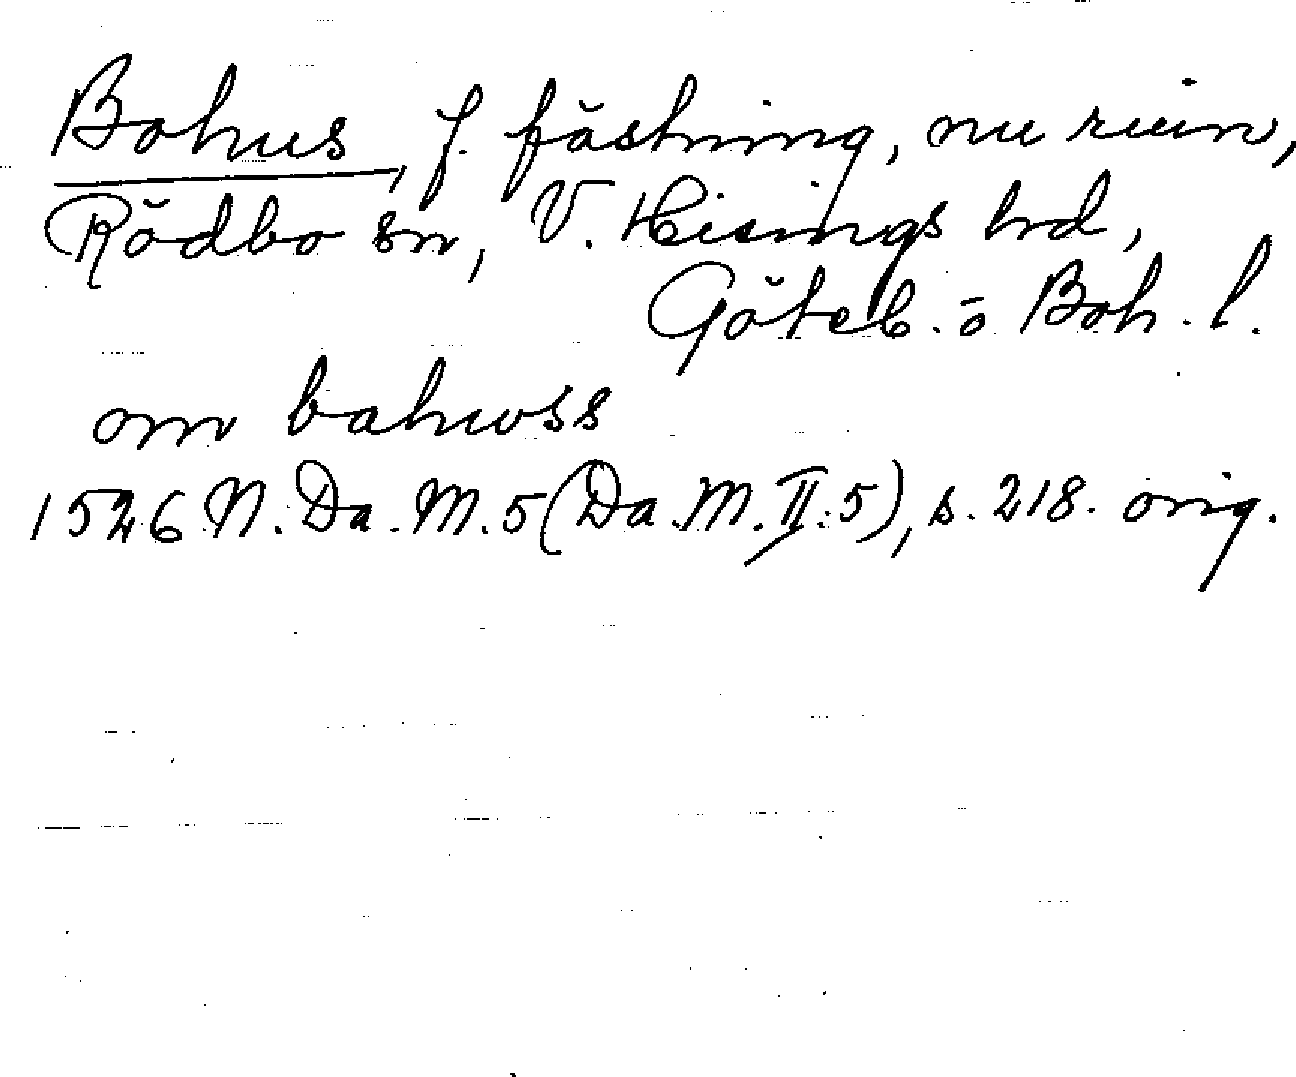 Bohus, f. fästning, nu ruin,
Rödbo sn, V. Hisings hd,
Göteb. o Boh. l.
om bahwss
1526 N. Da. M. 5 (Da. M. II:5), s. 218. orig.